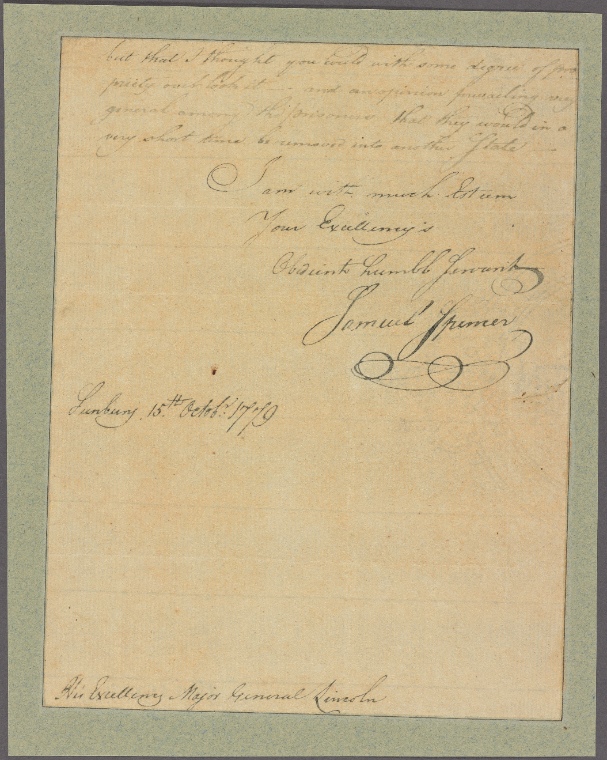 but that I thought you could with some degree of pro
priety over look it — and an opinion prevailing very
general among the prisoners, that they would in a
very short time be removed into another State —
I am with much Esteem
Your Excellency's
Obedient humble Servant
Samuel Spencer
Sunbury 15th Octobr. 1779
His Excellency Major General Lincoln